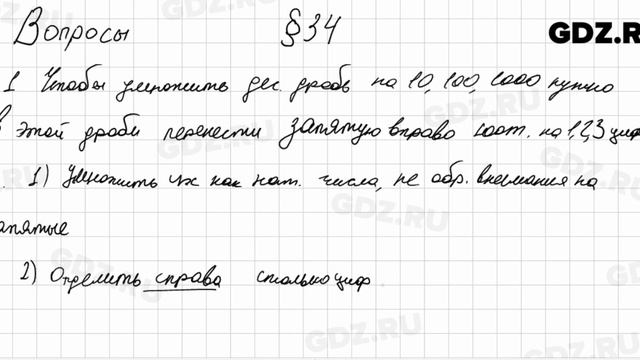 Вопросы §34
GDZ.RU
1 Чтобы умножить дес. дробь на 10, 100, 1000 нужно
в этой дроби перенести запятую вправо соот. на 1,2,3 циф
1) Умножить их как нат. числа, не обр. внимания на
апятые
2) Отделить справа столько циф